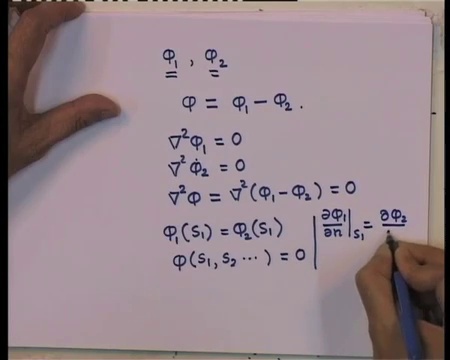 φ₁ , φ₂
φ = φ₁ − φ₂ .
∇²φ₁ = 0
∇²φ₂ = 0
∇²φ = ∇²(φ₁ − φ₂) = 0
φ₁(S₁) = φ₂(S₁) | ∂φ₁/∂n |S₁ = ∂φ₂
φ(S₁, S₂ ⋯) = 0